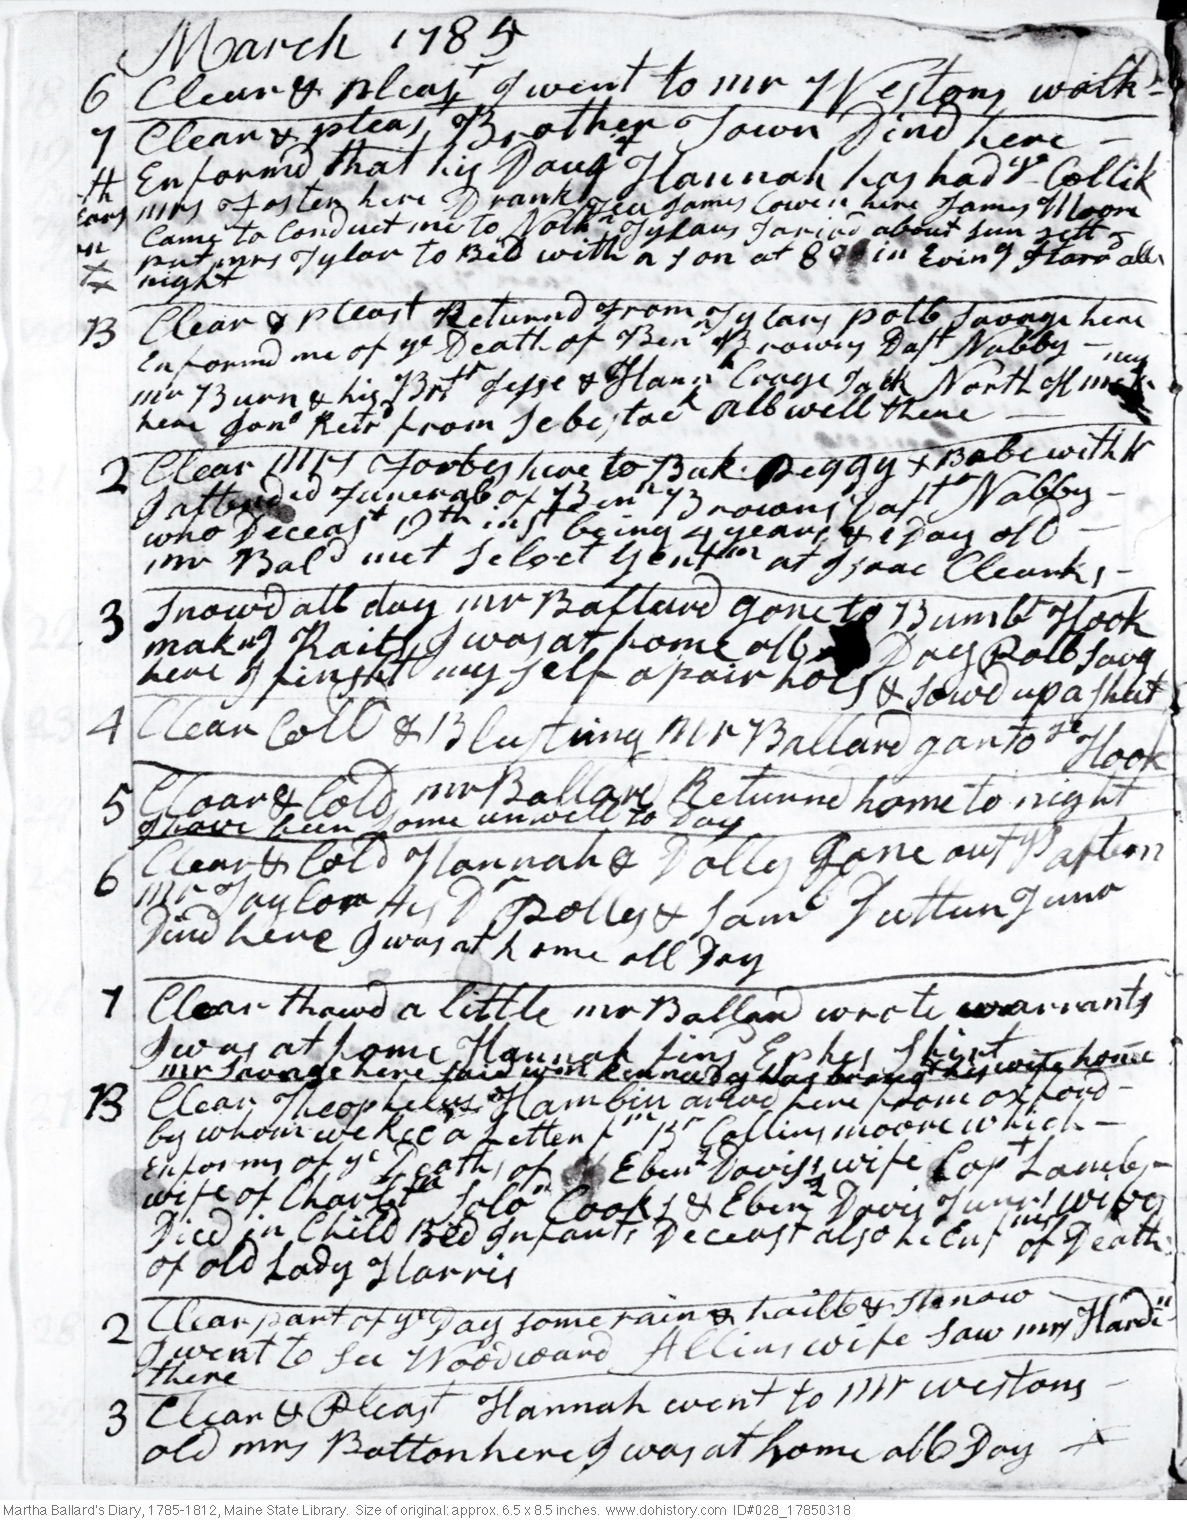 March 1785
6 Clear & pleast I went to mr Westons walk
7 Clear & pleast Brother Town Dind here
Enformd that his Daugt Hannah has had ye Collik
mrs foster here Drank Tea James Cowen here James Moore
Came to Conduct me to Nathn Tylars I arivd about sun sett
put mrs Tylar to Bed with a son at 8 in Eving Stard all
night
B Clear & pleast Returnd from Tylars polb Savage here
Enformd me of ye Death of Benn Browns Dafr Nabby
mr Burn & his Brthr Jesse & Hann Crage Jack North
here Jona Retd from Sebestock all well there
2 Clear Mrs Forbes here to Bak Peggy & Babe with hr
I attended Funeral of Benn Browns Daftr Nabby
who Deceast 19th inst being 4 years & 1 Day old
mr Bald met Select Gentmn at Isaac Clearks
3 Snowd all day mr Ballard gone to Bumbt Hook
makng Raits I was at home all Day Polb Savg
here I finsht my self a pair hoes & sowd up a shirt
4 Clear Cold & Blusting Mr Ballard gon to ye Hook
5 Clear & Cold mr Ballard Returnd home to night
I have been some unwell to Day
6 Clear & Cold Hannah & Dolly gone out ys aftern
Mr Taylor his Dr Polly & Saml Duttun Junr
Dind here I was at home all Day
7 Clear thawd a little mr Ballard wrote warrants
I was at home Hannah fins Ephes Shirt
mr Savage here said wm Kennady has brought his wife home
B Clear Theophelus Hamblin arivd here from oxford
by whom we Recd a Letter fm Br Collins moore which
Enforms of ye Deaths of Ebenr Daviss wife Capt Lambs
wife of Charltn Solon Cooks & Ebenr Davis Junrs wives
Died in Child Bed Infants Deceast also he Enf ms of Death
of old Lady Harris
2 Clear part of ye Day some rain & hailb & snow
I went to see Woodward Allins wife saw mrs Hardin
there
3 Clear & Pleast Hannah went to Mr westons
old mrs Batton here I was at home all Day
Martha Ballard's Diary, 1785-1812, Maine State Library. Size of original: approx. 6.5 x 8.5 inches. www.dohistory.com ID#028_17850318